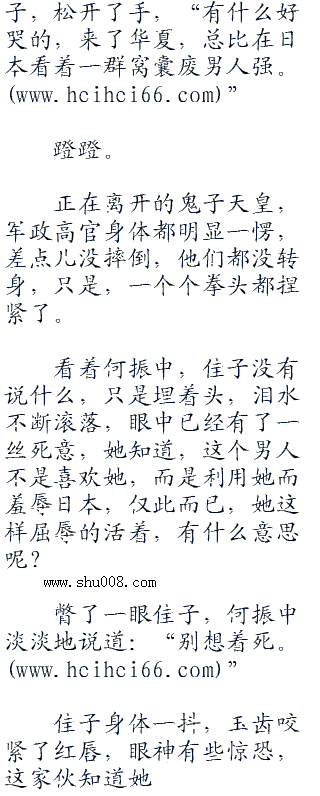 子，松开了手，“有什么好
哭的，来了华夏，总比在日
本看着一群窝囊废男人强。
(www.hcihci66.com)”
蹬蹬。
正在离开的鬼子天皇，
军政高官身体都明显一愣，
差点儿没摔倒，他们都没转
身，只是，一个个拳头都捏
紧了。
看着何振中，住子没有
说什么，只是埋着头，泪水
不断滚落，眼中已经有了一
丝死意，她知道，这个男人
不是喜欢她，而是利用她而
羞辱日本，仅此而已，她这
样屈辱的活着，有什么意思
呢？
www.shu008.com
瞥了一眼住子，何振中
淡淡地说道：“别想着死。
(www.hcihci66.com)”
住子身体一抖，玉齿咬
紧了红唇，眼神有些惊恐，
这家伙知道她